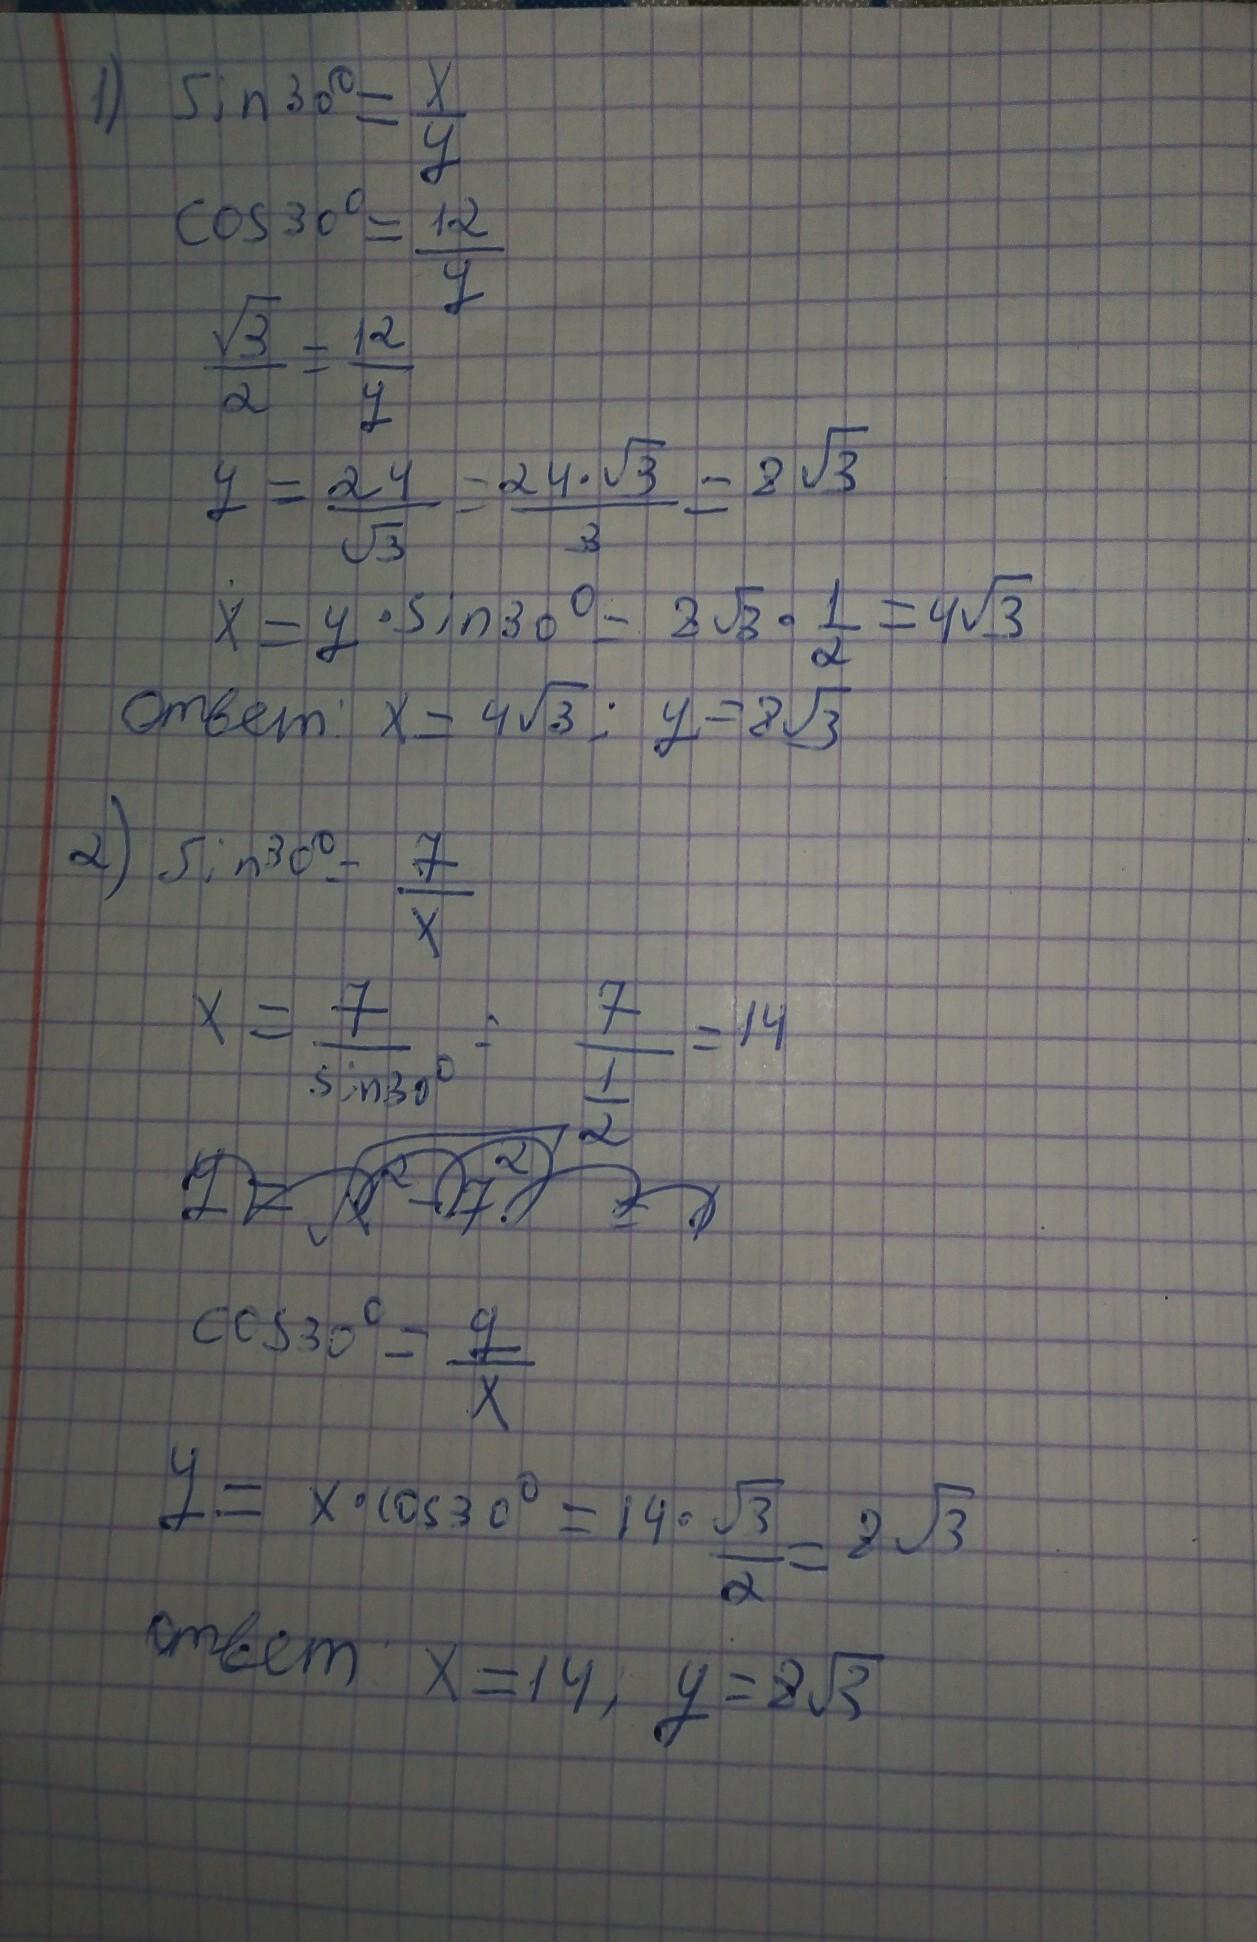 1) Sin30⁰ = x/y
cos30⁰ = 12/y
√3/2 = 12/y
y = 24/√3 = 24·√3/3 = 8√3
x = y·sin30⁰ = 8√3·1/2 = 4√3
Ответ: x = 4√3; y = 8√3
2) Sin30⁰ = 7/x
x = 7/sin30⁰ = 7/(1/2) = 14
cos30⁰ = y/x
y = x·cos30⁰ = 14·√3/2 = 8√3
Ответ x = 14; y = 8√3